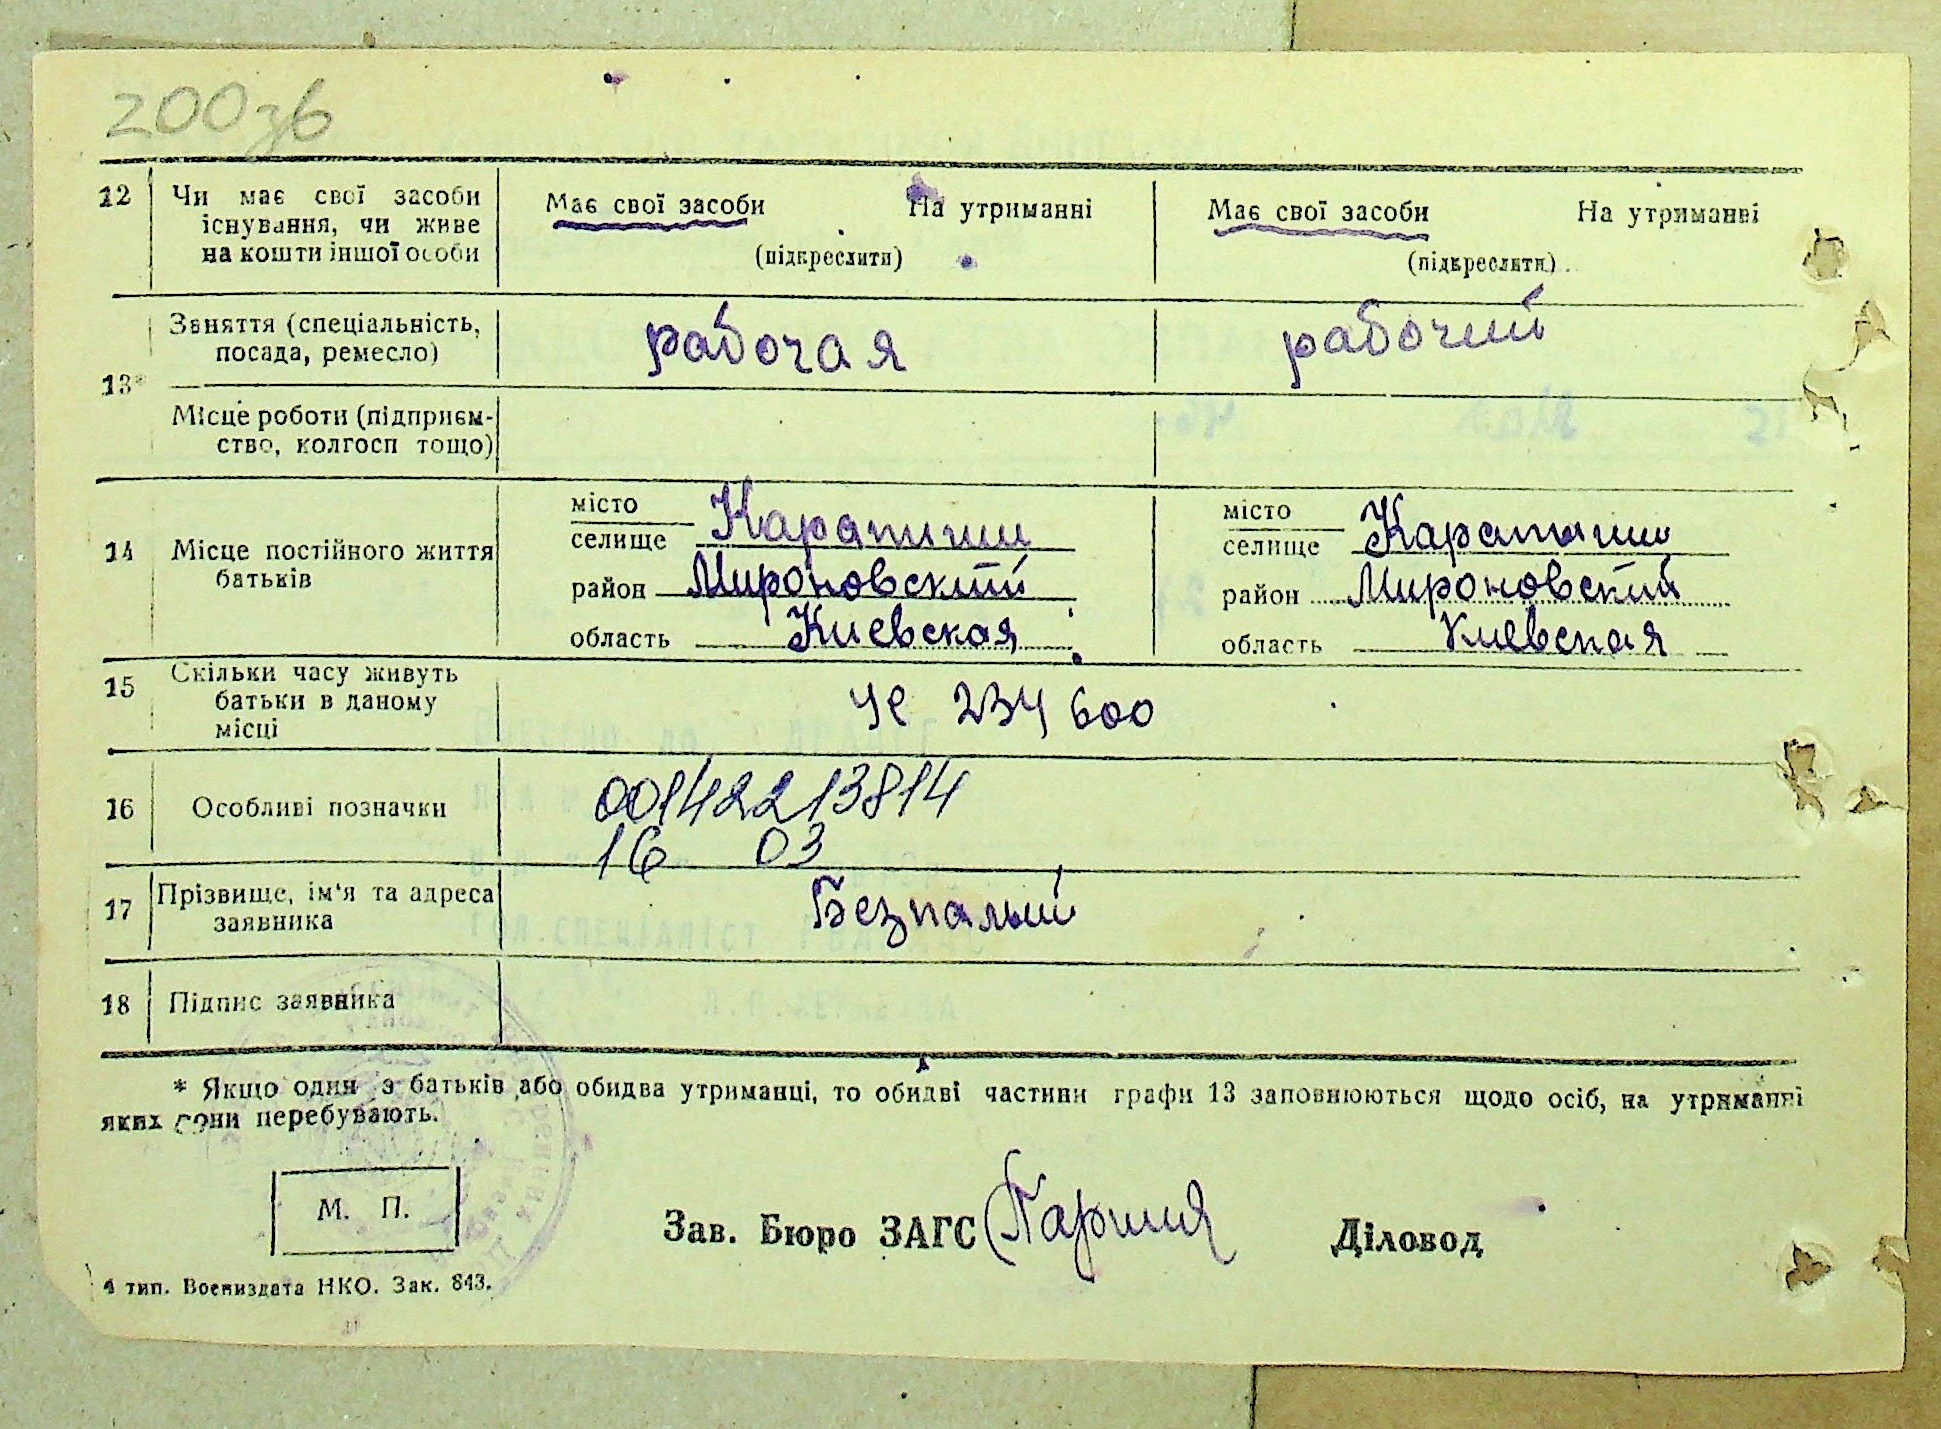 200зв
12 Чи має свої засоби існування, чи живе на кошти іншої особи
Має свої засоби На утриманні
(підкреслити)
Має свої засоби На утриманні
(підкреслити)
13* Заняття (спеціальність, посада, ремесло)
рабочая
рабочий
Місце роботи (підприєм-
ство, колгосп тощо)
14 Місце постійного життя батьків
місто
селище Карапиши
район Мироновский
область Киевская
місто
селище Карапыши
район Мироновский
область Киевская
15 Скільки часу живуть батьки в даному місці
ЧС 234600
16 Особливі позначки
00142213814
16 03
17 Прізвище, ім'я та адреса заявника
Безпалый
18 Підпис заявника
* Якщо один з батьків або обидва утриманці, то обидві частини графи 13 заповнюються щодо осіб, на утриманні
яких вони перебувають.
М. П.
Зав. Бюро ЗАГС
Діловод
4 тип. Воениздата НКО. Зак. 843.